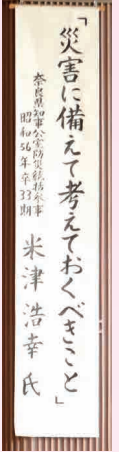 「災害に備えて考えておくべきこと」
奈良県知事公室防災統括参事
昭和56年卒33期
米津浩幸氏